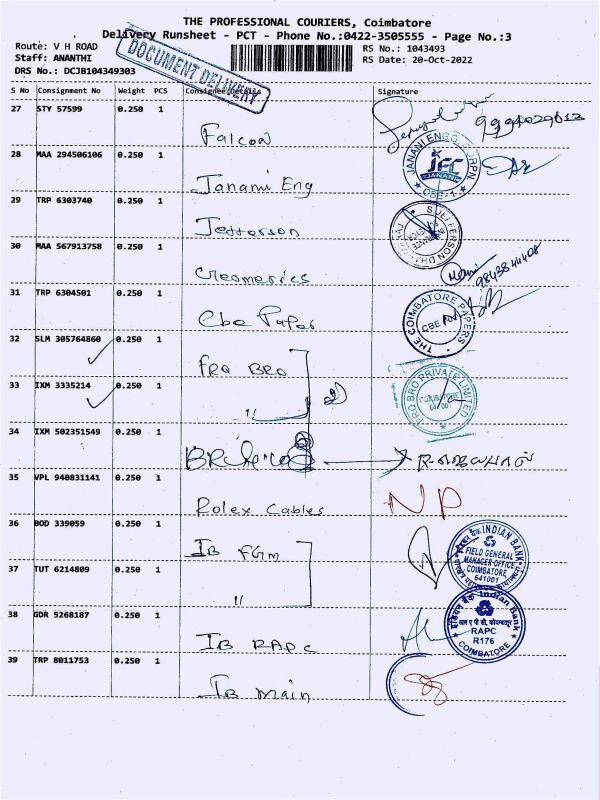 THE PROFESSIONAL COURIERS, Coimbatore
Delivery Runsheet - PCT - Phone No.:0422-3505555 - Page No.:3
Route: V H ROAD
RS No.: 1043493
Staff: ANANTHI
RS Date: 20-Oct-2022
DRS No.: DCJB104349303
DOCUMENT DELIVERY
S No Consignment No Weight PCS Consignee Details Signature
27 STY 57599 0.250 1
Falcon
28 MAA 294506106 0.250 1
Janami Eng
JANANI
29 TRP 6303740 0.250 1
Jefferson
30 MAA 567913758 0.250 1
31 TRP 6304501 0.250 1
Cbe Paper
THE COIMBATORE PAPERS
CBE
32 SLM 305764860 0.250 1
FRO BRO
33 IXM 3335214 0.250 1
"
FRO BRO PRIVATE LIMITED
COIMBATORE
34 IXM 502351549 0.250 1
35 VPL 940831141 0.250 1
Rolex Cables
NP
36 BOD 339059 0.250 1
IB FGM
INDIAN BANK
FIELD GENERAL
MANAGER OFFICE
COIMBATORE
641001
37 TUT 6214809 0.250 1
"
38 GDR 5268187 0.250 1
IB RAPC
इंडियन बैंक Indian Bank
RAPC
R176
COIMBATORE
39 TRP 8011753 0.250 1
IB main